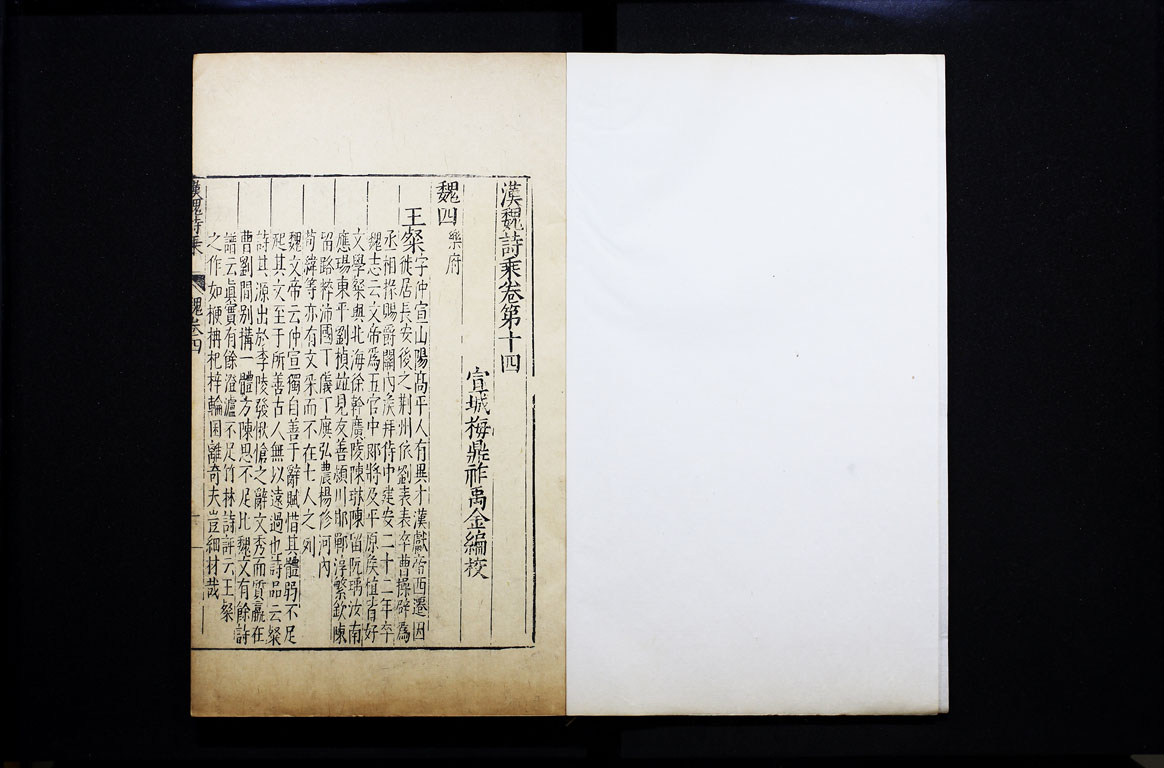 漢魏詩乘卷第十四
宣城梅鼎祚禹金編校
魏四 樂府
王粲 字仲宣山陽高平人有異才漢獻帝西遷因
徙居長安後之荆州依劉表表卒曹操辟為
丞相掾賜爵關內侯拜侍中建安二十二年卒
魏志云文帝為五官中郎將及平原侯植皆好
文學粲與北海徐幹廣陵陳琳陳留阮瑀汝南
應瑒東平劉楨竝見友善潁川邯鄲淳繁欽陳
留路粹沛國丁儀丁廙弘農楊修河內
荀緯等亦有文采而不在七人之列
魏文帝云仲宣獨自善于辭賦惜其體弱不足
起其文至于所善古人無以遠過也詩品云粲
詩其源出於李陵發愀愴之辭文秀而質羸在
曹劉間別搆一體方陳思不足比魏文有餘詩
譜云真實有餘澄濾不足竹林詩評云王粲
之作如梗枏杞梓輪囷離奇夫豈細材哉
漢魏詩乘 魏卷四 一